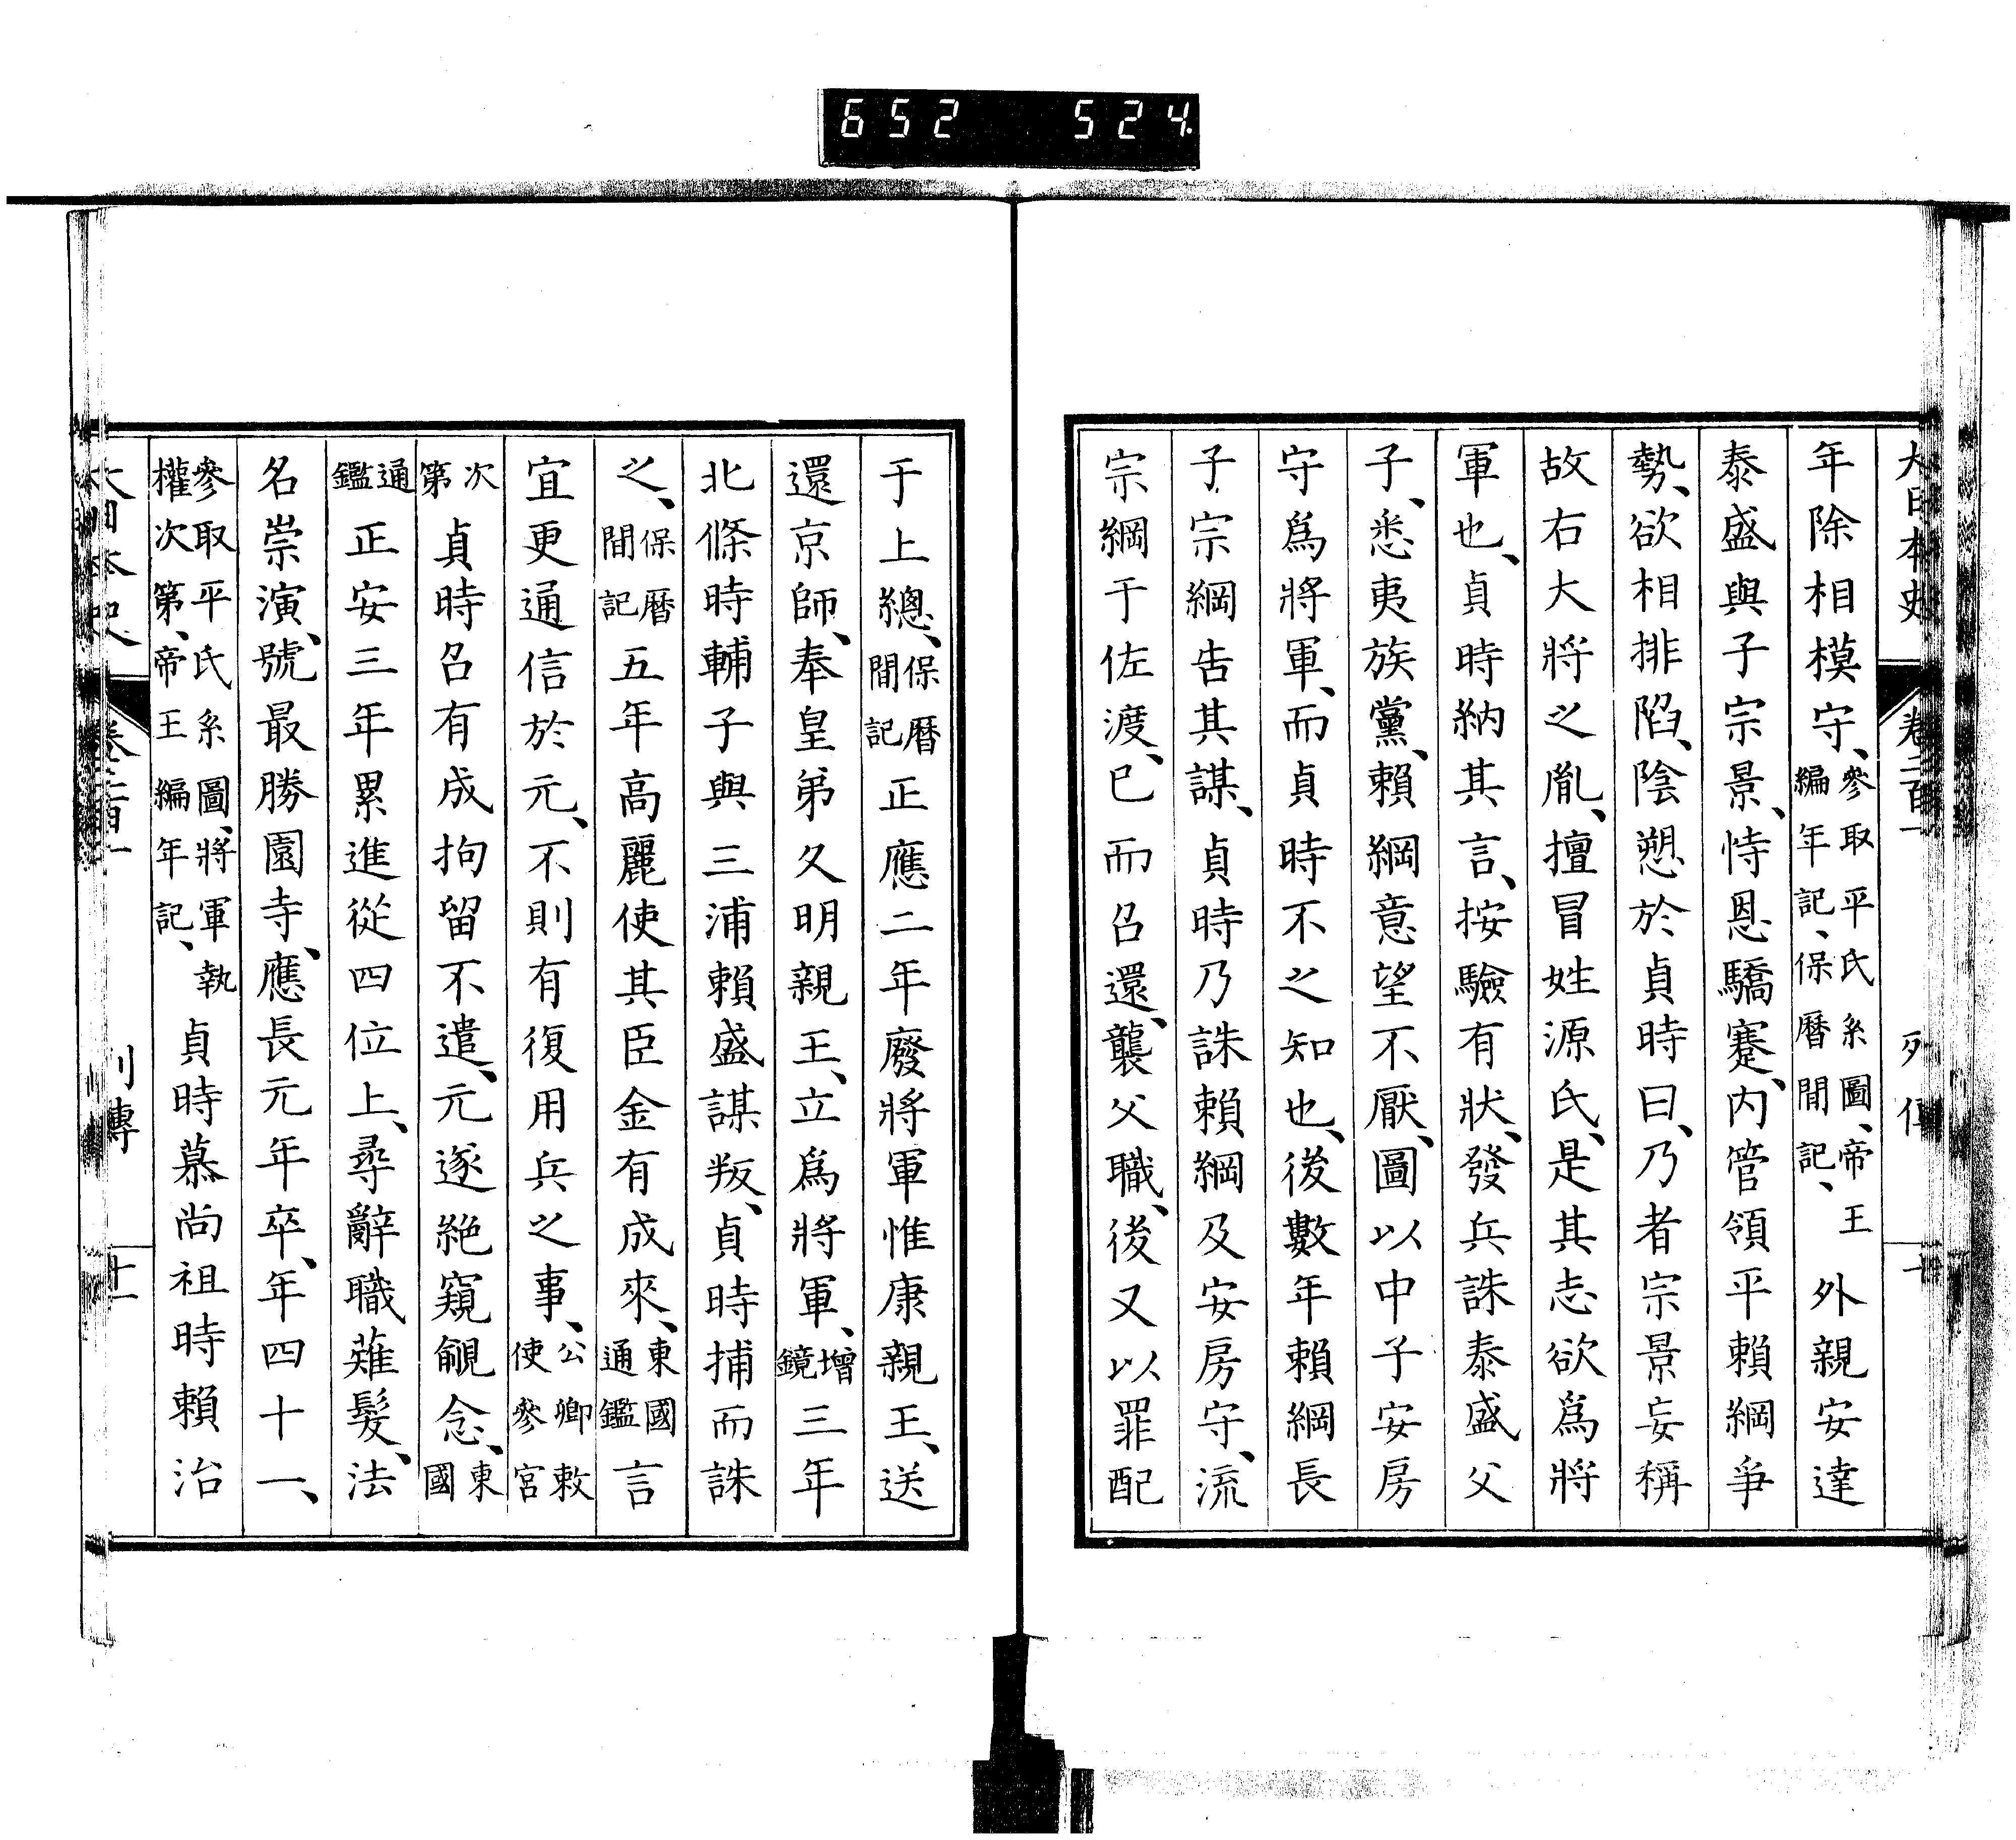 652 524
大日本史 卷二百一 列傳 十
年除相模守、參取平氏系圖、帝王編年記、保曆間記、外親安達
泰盛與子宗景、恃恩驕蹇、内管領平賴綱爭
勢、欲相排陷、陰愬於貞時曰、乃者宗景妄稱
故右大將之胤、擅冒姓源氏、是其志欲爲將
軍也、貞時納其言、按驗有狀、發兵誅泰盛父
子、悉夷族黨、賴綱意望不厭、圖以中子安房
守爲將軍、而貞時不之知也、後數年賴綱長
子宗綱告其謀、貞時乃誅賴綱及安房守、流
宗綱于佐渡、已而召還、襲父職、後又以罪配
于上總、保曆間記正應二年廢將軍惟康親王、送
還京師、奉皇弟久明親王、立爲將軍、增鏡三年
北條時輔子與三浦賴盛謀叛、貞時捕而誅
之、保曆間記五年高麗使其臣金有成來、東國通鑑言
宜更通信於元、不則有復用兵之事、公卿敕使參宮
次第貞時召有成拘留不遣、元遂絶窺覦念、東國
通鑑正安三年累進從四位上、尋辭職薙髮、法
名崇演、號最勝園寺、應長元年卒、年四十一、
參取平氏系圖、將軍執權次第、帝王編年記、貞時慕尚祖時賴治
大日本史 卷二百一 列傳 十一